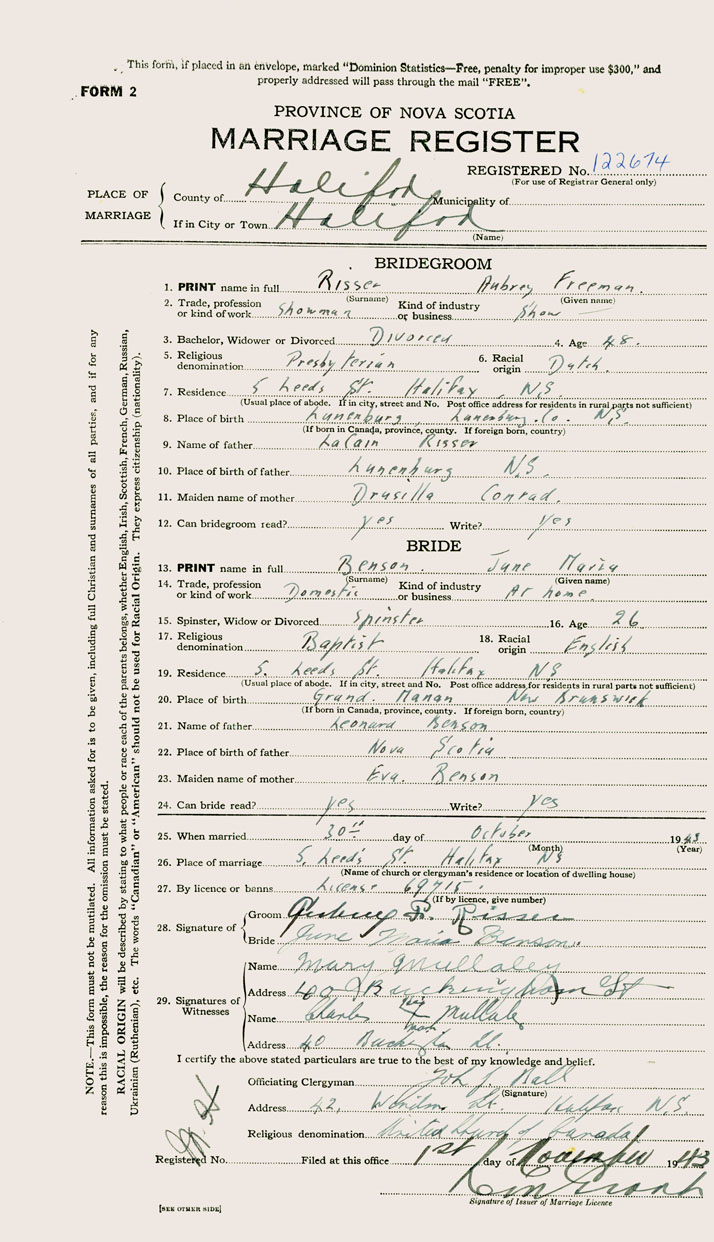 This form, if placed in an envelope, marked "Dominion Statistics—Free, penalty for improper use $300," and
properly addressed will pass through the mail "FREE".
FORM 2
PROVINCE OF NOVA SCOTIA
MARRIAGE REGISTER
REGISTERED No. 122674
(For use of Registrar General only)
PLACE OF MARRIAGE
County of Halifax Municipality of
If in City or Town Halifax
(Name)
BRIDEGROOM
1. PRINT name in full Risser Aubrey Freeman.
(Surname) (Given name)
2. Trade, profession or kind of work Showman Kind of industry or business Show —
3. Bachelor, Widower or Divorced Divorced 4. Age 48.
5. Religious denomination Presbyterian 6. Racial origin Dutch.
7. Residence 5 Leeds St. Halifax N.S.
(Usual place of abode. If in city, street and No. Post office address for residents in rural parts not sufficient)
8. Place of birth Lunenburg, Lunenburg. Co. N.S.
(If born in Canada, province, county. If foreign born, country)
9. Name of father LaCain Risser
10. Place of birth of father Lunenburg N.S.
11. Maiden name of mother Drusilla Conrad.
12. Can bridegroom read? yes Write? yes
BRIDE
13. PRINT name in full Benson. June Maria
(Surname) (Given name)
14. Trade, profession or kind of work Domestic Kind of industry or business At home.
15. Spinster, Widow or Divorced Spinster 16. Age 26
17. Religious denomination Baptist 18. Racial origin English
19. Residence 5. Leeds St. Halifax NS
(Usual place of abode. If in city, street and No. Post office address for residents in rural parts not sufficient)
20. Place of birth Grand. Manan New Brunswick
(If born in Canada, province, county. If foreign born, country)
21. Name of father Leonard Benson
22. Place of birth of father Nova Scotia
23. Maiden name of mother Eva. Benson
24. Can bride read? yes Write? yes
25. When married 30th day of October 1943
(Month) (Year)
26. Place of marriage 5, Leeds St. Halifax NS
(Name of church or clergyman's residence or location of dwelling house)
27. By licence or banns License 69715.
(If by licence, give number)
28. Signature of
Groom Aubrey F. Risser
Bride June Maria Benson.
29. Signatures of Witnesses
Name Mary Mullaley
Address 40 Buckingham St
Name Charles his X mark Mullaley
Address 40 St.
I certify the above stated particulars are true to the best of my knowledge and belief.
Officiating Clergyman Ball
(Signature)
Address 42, St. Halifax N.S.
Religious denomination United Church of Canada
Registered No. Filed at this office 1st day of November 1943
Signature of Issuer of Marriage Licence
[SEE OTHER SIDE]
NOTE.—This form must not be mutilated. All information asked for is to be given, including full Christian and surnames of all parties, and if for any
reason this is impossible, the reason for the omission must be stated.
RACIAL ORIGIN will be described by stating to what people or race each of the parents belongs, whether English, Irish, Scottish, French, German, Russian,
Ukrainian (Ruthenian), etc. The words "Canadian" or "American" should not be used for Racial Origin. They express citizenship (nationality).